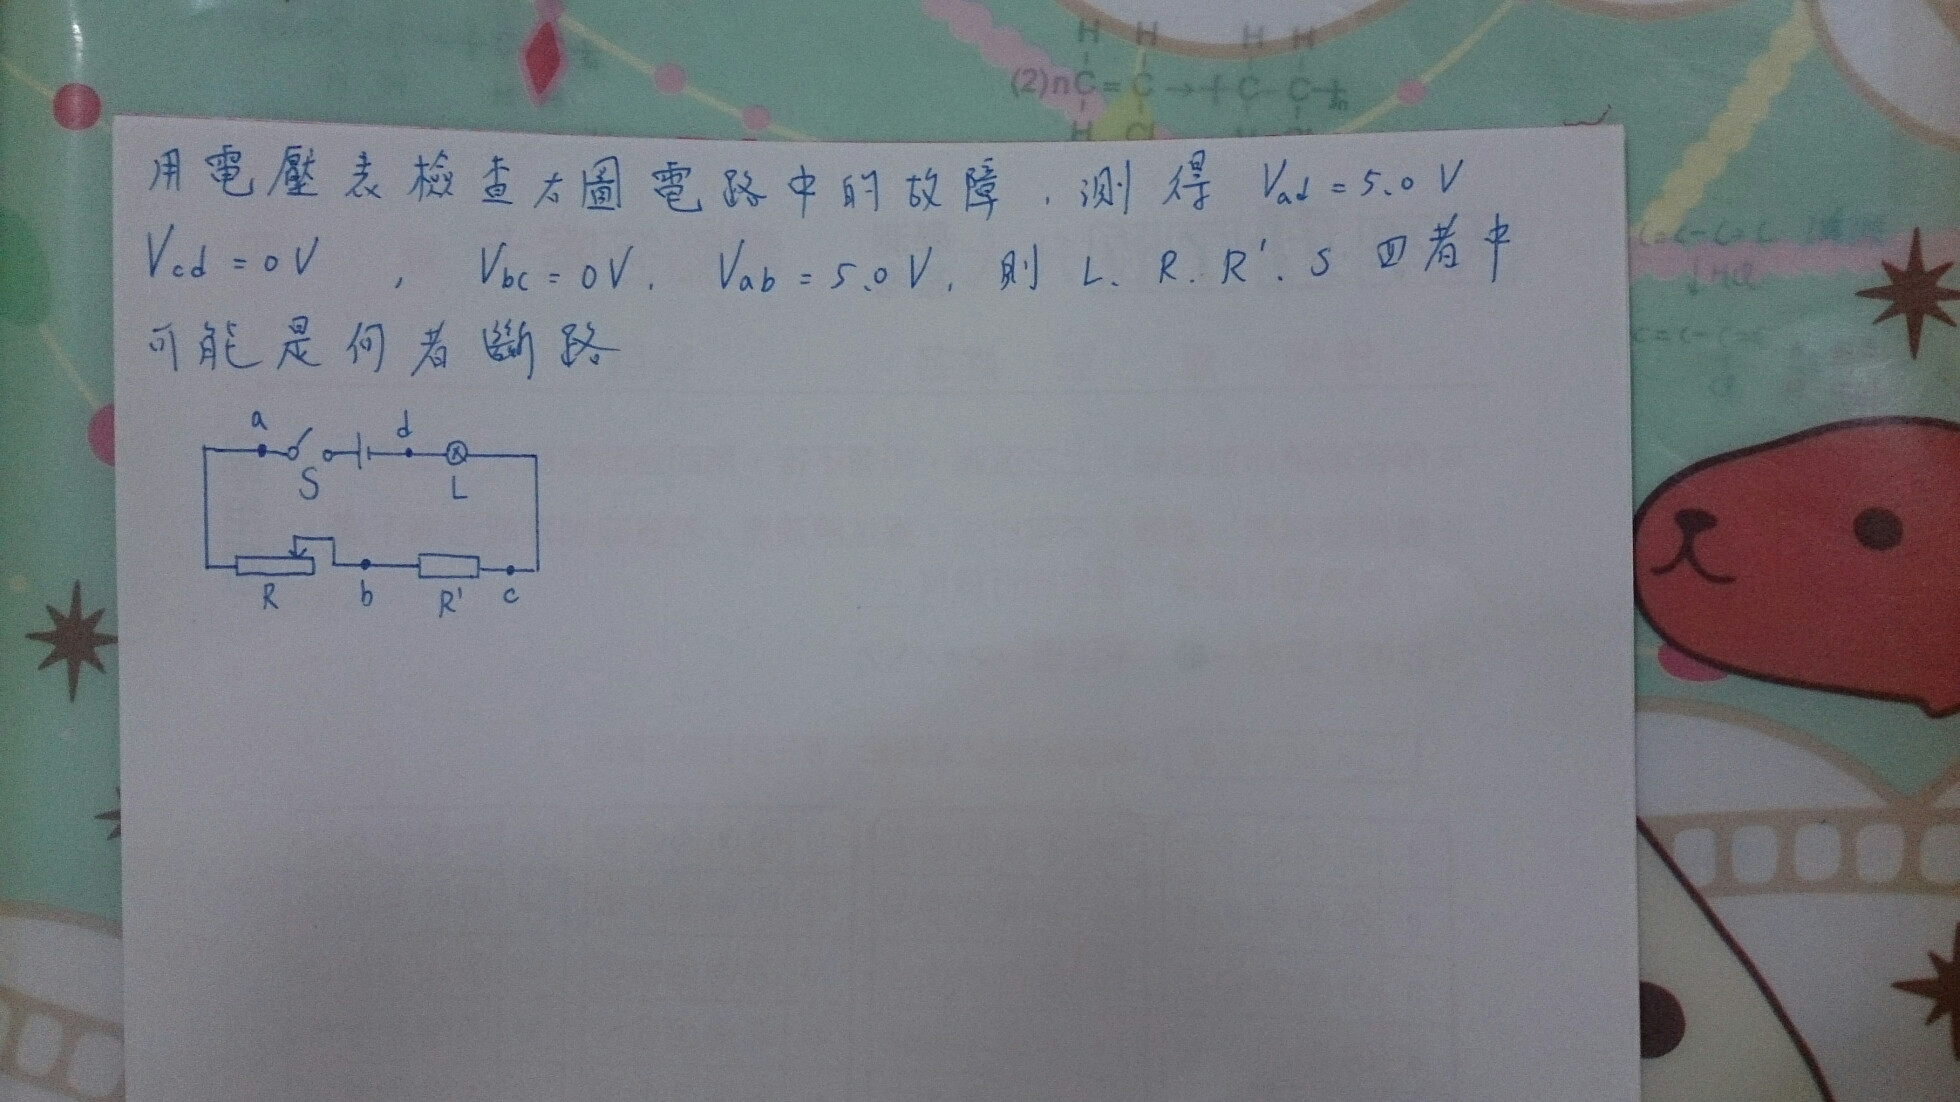 (2)nC=C→+C-C+n
用電壓表檢查右圖電路中的故障,測得 Vad=5.0V
Vcd=0V , Vbc=0V, Vab=5.0V, 則 L、R、R'、S 四者中
可能是何者斷路
a
d
S
L
R
b
R'
c